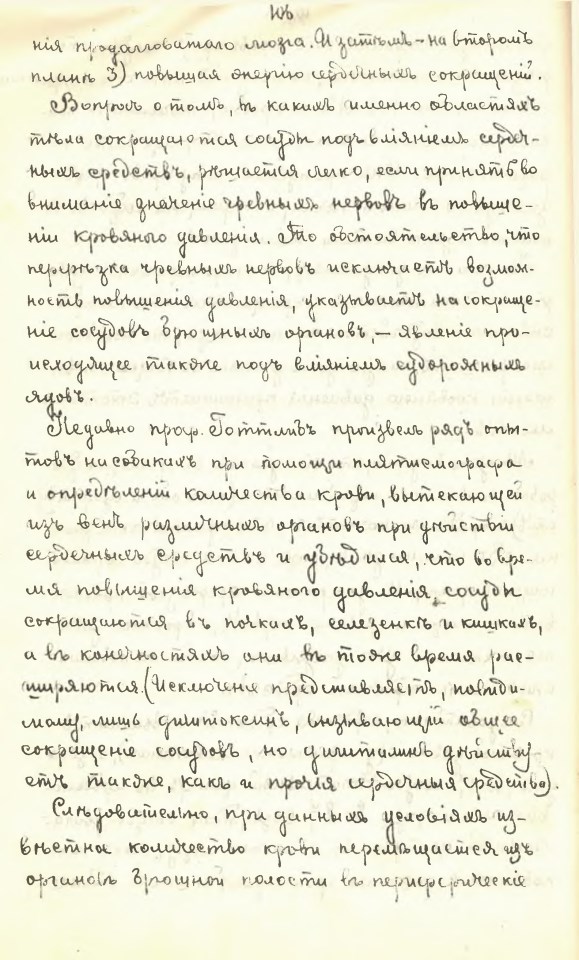 нія продолговатаго мозга. И затѣмъ – на второмъ
планѣ 3) повышая энергію сердечныхъ сокращеній.
Вопросъ о томъ, въ какихъ именно областяхъ
тѣла сокращаются сосуды подъ вліяніемъ сердеч-
ныхъ средствъ, рѣшается легко, если принять во
вниманіе значеніе чревныхъ нервовъ въ повыше-
ніи кровяного давленія. То обстоятельство, что
перерѣзка чревныхъ нервовъ исключаетъ возмож-
ность повышенія давленія, указываетъ на сокраще-
ніе сосудовъ брюшныхъ органовъ, – явленіе про-
исходящее также подъ вліяніемъ судорожныхъ
ядовъ.
Недавно проф. Готтлибъ произвелъ рядъ опы-
товъ на собакахъ при помощи плятисмографа
и опредѣленій количества крови, вытекающей
изъ венъ различныхъ органовъ при дѣйствіи
сердечныхъ средствъ и убѣдился, что во вре-
мя повышенія кровяного давленія, сосуды
сокращаются въ почкахъ, селезенкѣ и кишкахъ,
а въ конечностяхъ они въ тоже время рас-
ширяются. (Исключеніе представляетъ, повиди-
мому, лишь дигитоксинъ, вызывающій общее
сокращеніе сосудовъ, но дигиталинъ дѣйству-
етъ также, какъ и прочія сердечныя средства).
Слѣдовательно, при данныхъ условіяхъ из-
вѣстное количество крови перемѣщается изъ
органовъ брюшной полости въ периферическіе